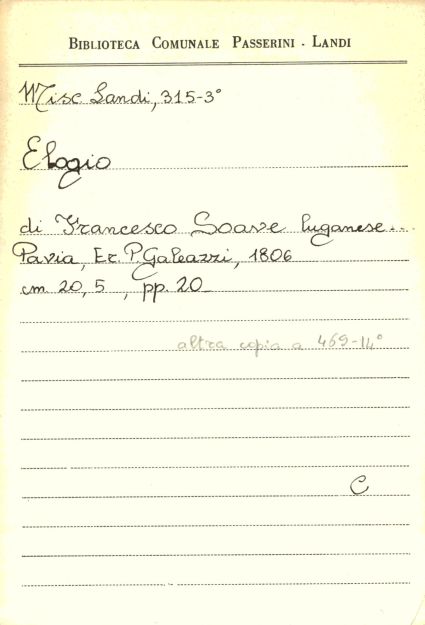 BIBLIOTECA COMUNALE PASSERINI - LANDI
Misc Landi, 315-3°
Elogio
di Francesco Soave luganese...
Pavia, Er. P. Galeazzi, 1806
cm 20,5 , pp. 20
altra copia a 469-14°
C